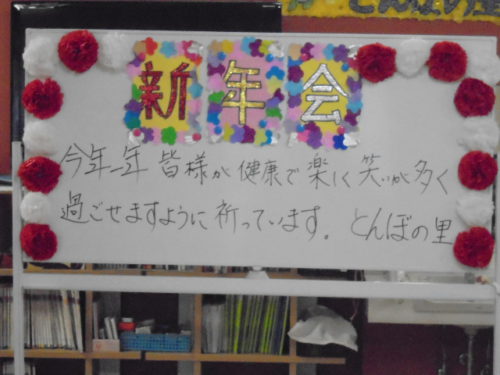 新年会
今年一年 皆様が健康で楽しく笑いが多く
過ごせますように祈っています。 とんぼの里